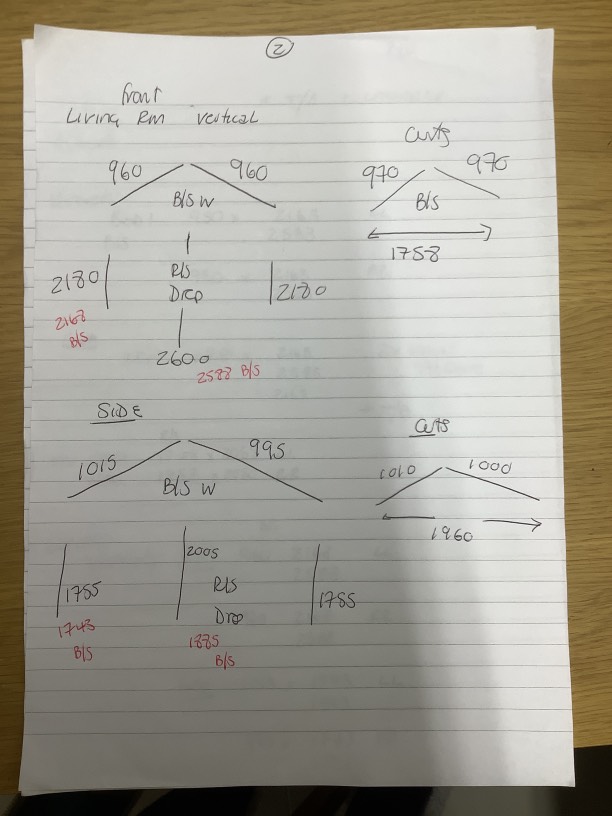 2
front
Living Rm vertical
960 960
B/S W
2180
R/S
Drop
2180
2168
B/S
2600
2588 B/S
Curts
970 970
B/S
1758
SIDE
1015 995
B/S W
1755
1743
B/S
2005
R/S
Drop
1885
B/S
1755
Curts
1010 1000
1960